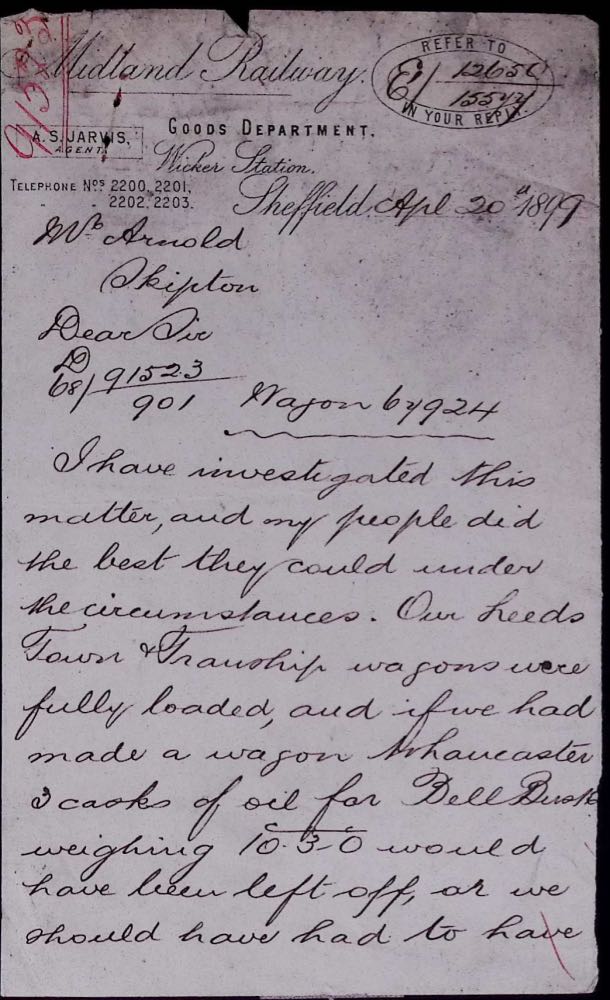 91523
Midland Railway.
REFER TO
E/ 12656
15544
IN YOUR REPLY.
A. S. JARVIS,
AGENT.
GOODS DEPARTMENT.
Wicker Station.
TELEPHONE Nos 2200, 2201,
" " 2202, 2203.
Sheffield, Apl 20th 1899
Mr Arnold
Skipton
Dear Sir
D
68/ 91523
901 Wagon 67924
I have investigated this
matter, and my people did
the best they could under
the circumstances. Our Leeds
Town & Tranship wagons were
fully loaded, and if we had
made a wagon
3 casks of oil for Bell Busk
weighing 10-3-0 would
have been left off, or we
should have had to have